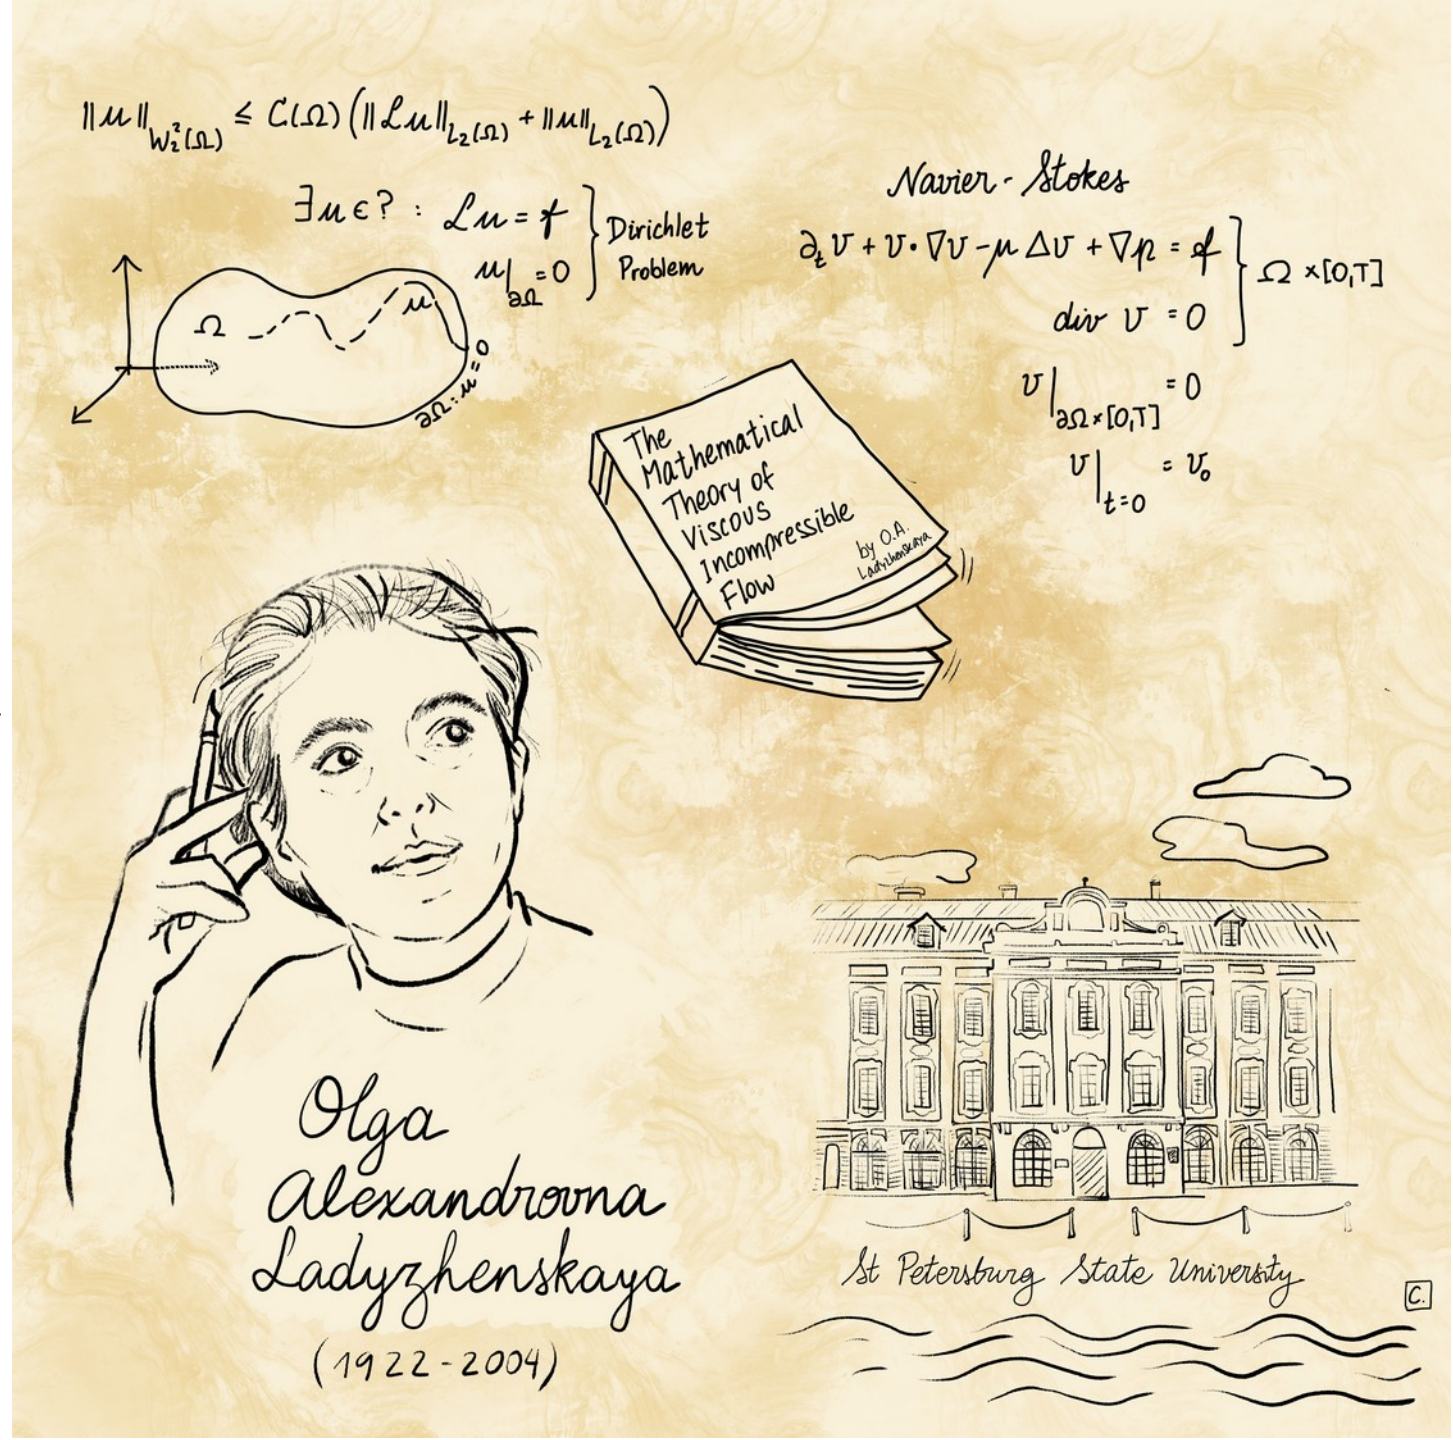 ||u||_{W_2^2(Ω)} ≤ C(Ω)(||ℒu||_{L_2(Ω)} + ||u||_{L_2(Ω)})
∃u∈? : ℒu = f } Dirichlet
u|_{∂Ω} = 0 Problem
Ω
u
∂Ω: u=0
Navier-Stokes
∂_t v + v·∇v - μΔv + ∇p = f } Ω×[0,T]
div v = 0
v|_{∂Ω×[0,T]} = 0
v|_{t=0} = v_0
The
Mathematical
Theory of
Viscous
Incompressible
Flow
by O.A.
Ladyzhenskaya
Olga
Alexandrovna
Ladyzhenskaya
(1922-2004)
St Petersburg State University
C.